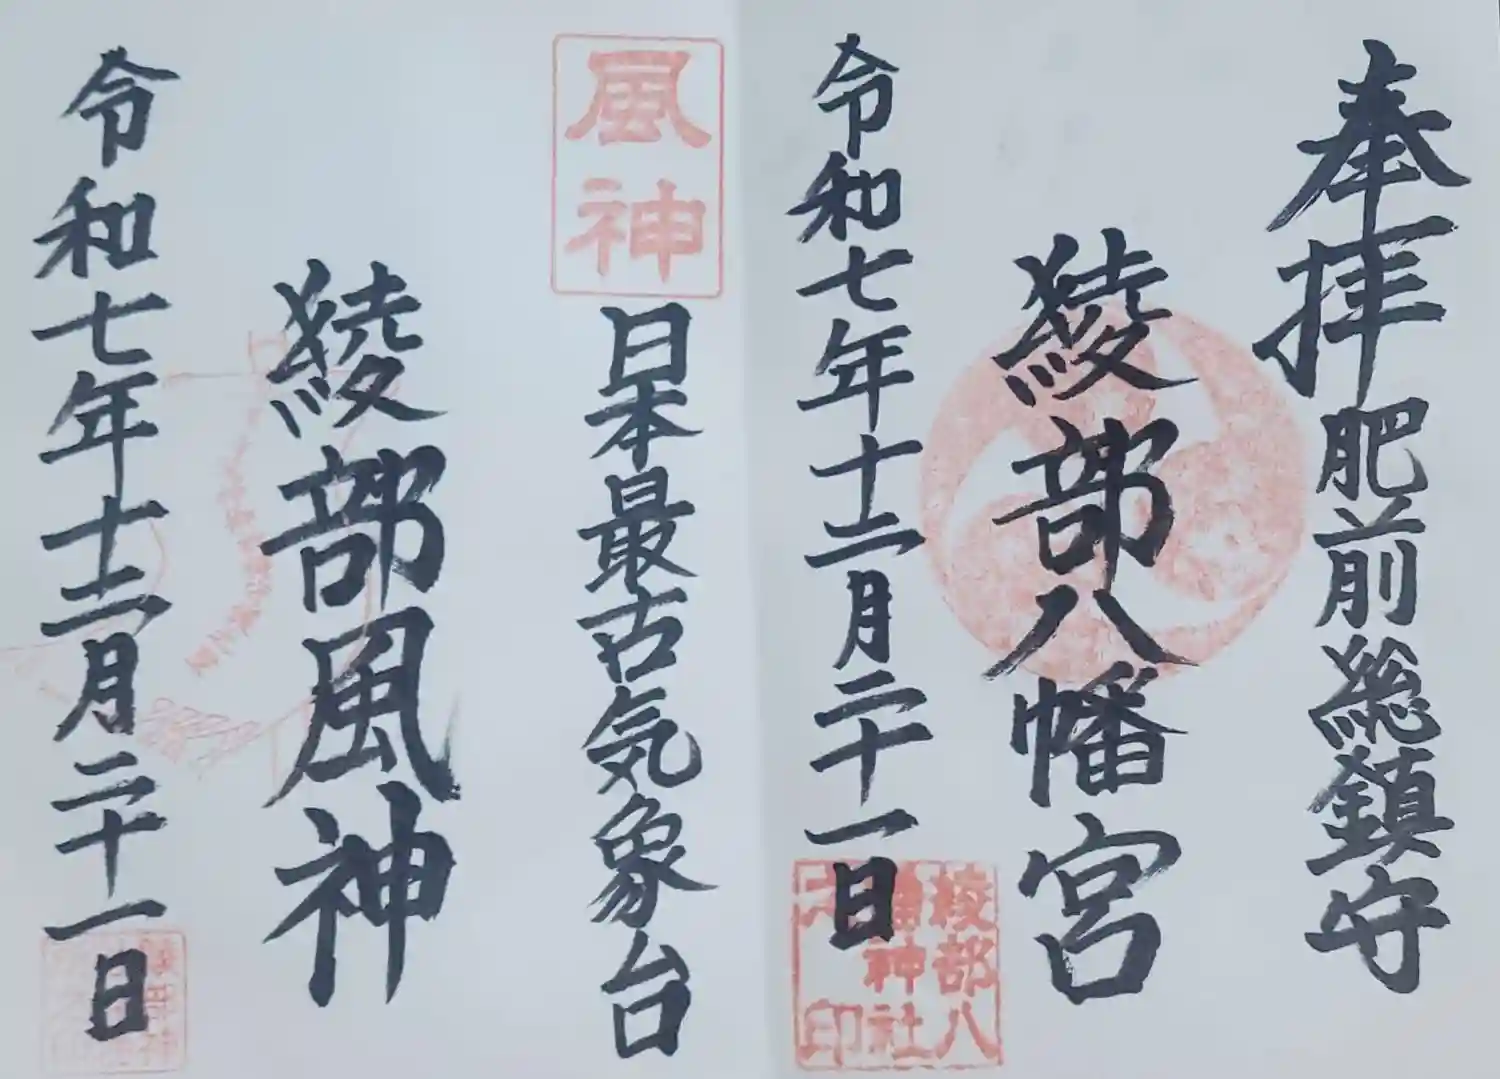 奉拝
肥前総鎮守
綾部八幡宮
令和七年十二月二十一日
綾部八
幡神社
之印
風神
日本最古気象台
綾部風神
令和七年十二月二十一日